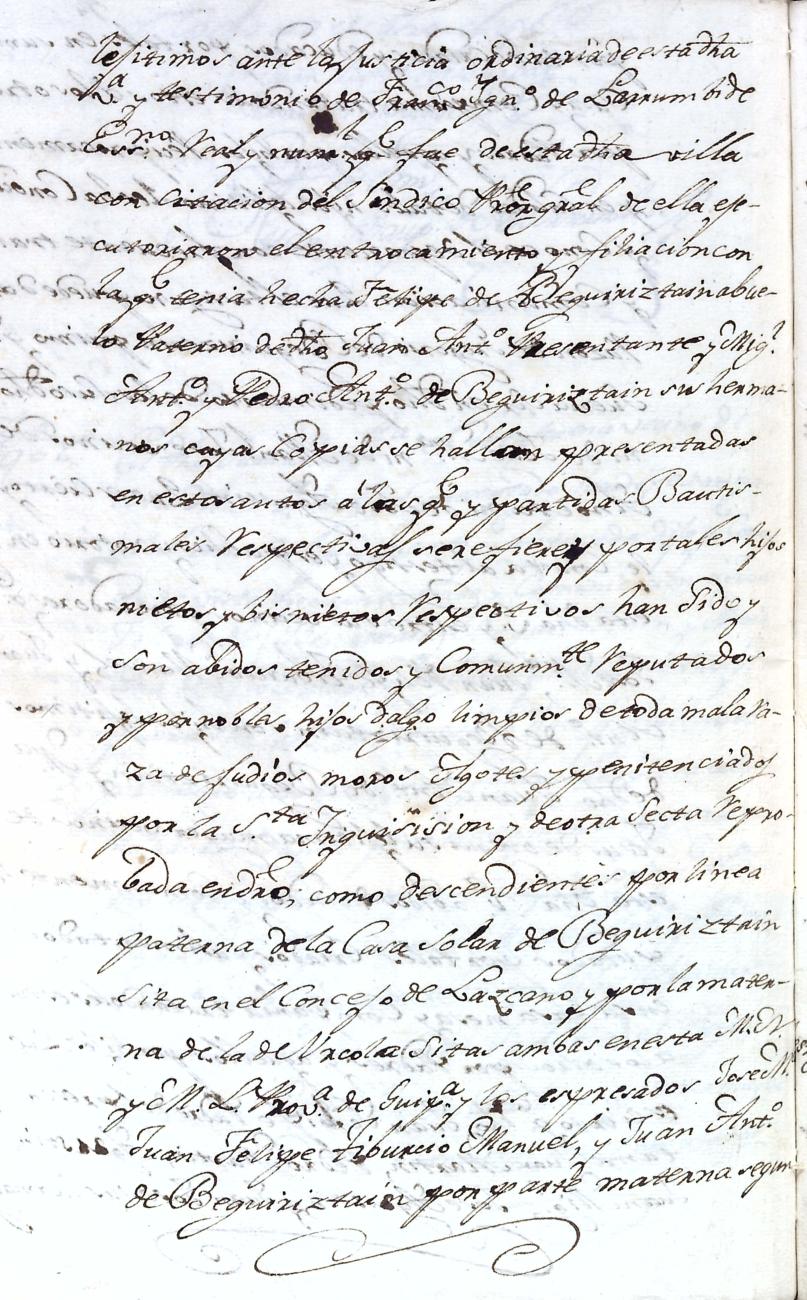 lejitimos ante la Justicia ordinaria de esta dha
Va y testimonio de Franco Ygno. de Larrumbide
Essno. Real y numl. q fue de esta dha villa
con citacion del Sindico Pror gral de ella ep-
cutoriaron el entrocamiento y filiacion con
la q tenia hecha Felipe de Beguiriztain abue-
lo Paterno de dho Juan Anto. Presentante y Migl.
Anto. y Pedro Anto. de Beguiriztain sus herma-
nos cuyas Copias se hallan presentadas
en estos autos á las q y partidas Bautis-
males Respectivas se refieren y por tales hijos
nietos y bisnietos Respectivos han sido y
son abidos tenidos y Comunmte. Reputados
y por nobles hijos dalgo limpios de toda mala Ra-
za de Judios moros Agotes y penitenciados
por la Sta. Ynquisision y de otra Secta Repro-
bada en dro, como descendientes por linea
paterna de la Casa Solar de Beguiriztain
Sita en el Concejo de Lazcano y por la mater-
na de la de Urcola Sitas ambas en esta M. N.
y M. L. Prova. de Guipa. y los espresados Jose M.
Juan Felipe Tiburcio Manuel, y Juan Anto.
de Beguiriztain por parte materna segun